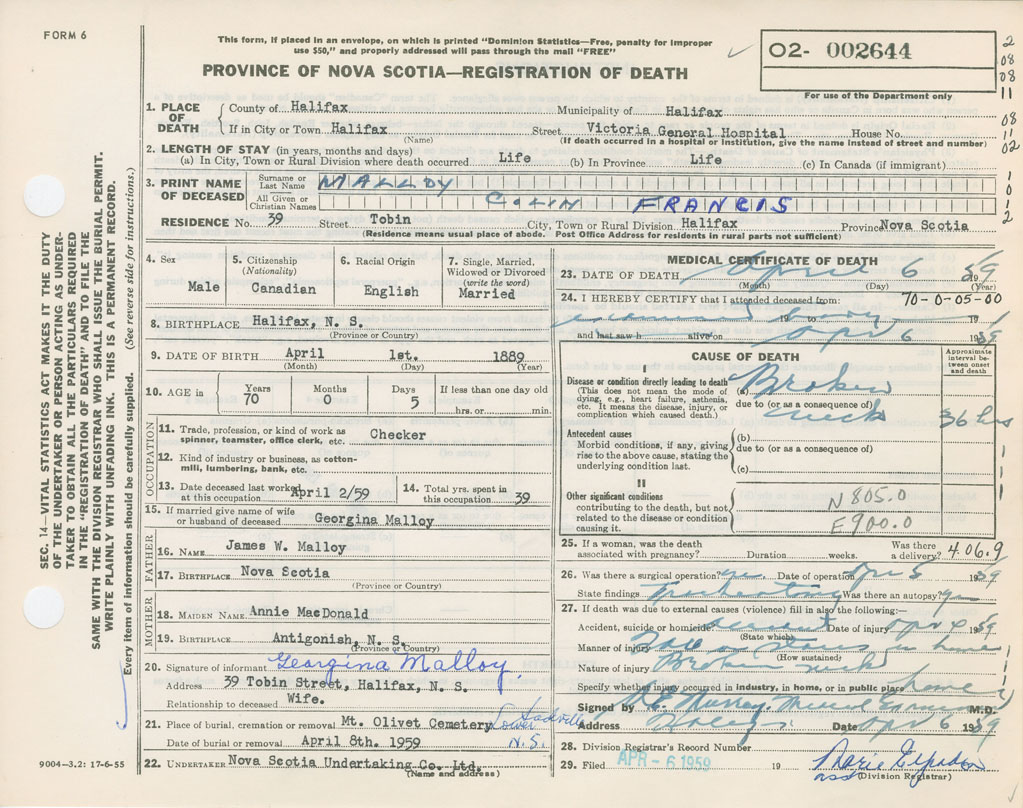 FORM 6
This form, if placed in an envelope, on which is printed "Dominion Statistics—Free, penalty for improper
use $50," and properly addressed will pass through the mail "FREE"
PROVINCE OF NOVA SCOTIA—REGISTRATION OF DEATH
02- 002644
For use of the Department only
2
08
08
11
08
11
02
1
0
1
2
SEC. 14—VITAL STATISTICS ACT MAKES IT THE DUTY
OF THE UNDERTAKER OR PERSON ACTING AS UNDER-
TAKER TO OBTAIN ALL THE PARTICULARS REQUIRED
IN THE "REGISTRATION OF DEATH" AND TO FILE THE
SAME WITH THE DIVISION REGISTRAR WHO SHALL ISSUE THE BURIAL PERMIT.
WRITE PLAINLY WITH UNFADING INK. THIS IS A PERMANENT RECORD.
Every item of information should be carefully supplied. (See reverse side for instructions.)
1. PLACE OF DEATH
County of Halifax Municipality of Halifax
If in City or Town Halifax Street Victoria General Hospital House No.
(Name) (If death occurred in a hospital or institution, give the name instead of street and number)
2. LENGTH OF STAY (in years, months and days)
(a) In City, Town or Rural Division where death occurred Life (b) In Province Life (c) In Canada (if immigrant)
3. PRINT NAME OF DECEASED
Surname or Last Name MALLOY
All Given or Christian Names COLIN FRANCIS
RESIDENCE No. 39 Street Tobin City, Town or Rural Division Halifax Province Nova Scotia
(Residence means usual place of abode. Post Office Address for residents in rural parts not sufficient)
4. Sex
Male
5. Citizenship
(Nationality)
Canadian
6. Racial Origin
English
7. Single, Married,
Widowed or Divorced
(write the word)
Married
8. BIRTHPLACE Halifax, N. S.
(Province or Country)
9. DATE OF BIRTH April 1st. 1889
(Month) (Day) (Year)
10. AGE in
Years Months Days If less than one day old
70 0 5 hrs. or min.
OCCUPATION
11. Trade, profession, or kind of work as
spinner, teamster, office clerk, etc. Checker
12. Kind of industry or business, as cotton-
mill, lumbering, bank, etc.
13. Date deceased last worked
at this occupation April 2/59
14. Total yrs. spent in
this occupation 39
15. If married give name of wife
or husband of deceased Georgina Malloy
FATHER
16. NAME James W. Malloy
17. BIRTHPLACE Nova Scotia
(Province or Country)
MOTHER
18. MAIDEN NAME Annie MacDonald
19. BIRTHPLACE Antigonish, N. S.
(Province or Country)
20. Signature of informant Georgina Malloy
Address 39 Tobin Street, Halifax, N. S.
Relationship to deceased Wife.
21. Place of burial, cremation or removal Mt. Olivet Cemetery Lower Sackville
Date of burial or removal April 8th. 1959 N.S.
22. UNDERTAKER Nova Scotia Undertaking Co. Ltd.
(Name and address)
9004-3.2: 17-6-55
MEDICAL CERTIFICATE OF DEATH
23. DATE OF DEATH April 6 1959
(Month) (Day) (Year)
24. I HEREBY CERTIFY that I attended deceased from: 70-0-05-00
examined body 19 to 19
and last saw h alive on Apr 6 1959
CAUSE OF DEATH
Approximate
interval be-
tween onset
and death
I
Disease or condition directly leading to death
(This does not mean the mode of
dying, e.g., heart failure, asthenia,
etc. It means the disease, injury, or
complication which caused death.)
(a) Broken
due to (or as a consequence of)
neck 36 hrs
Antecedent causes
Morbid conditions, if any, giving
rise to the above cause, stating the
underlying condition last.
(b)
due to (or as a consequence of)
(c)
II
Other significant conditions
contributing to the death, but not
related to the disease or condition
causing it.
N 805.0
E900.0
25. If a woman, was the death
associated with pregnancy? Duration weeks. Was there
a delivery? 4.06.9
26. Was there a surgical operation? yes. Date of operation Apr 5 1959
State findings Tracheotomy Was there an autopsy? yes
27. If death was due to external causes (violence) fill in also the following:—
Accident, suicide or homicide? accident Date of injury Apr 4 1959
(State which)
Manner of injury Fall on stairs in home
(How sustained)
Nature of injury Broken neck
Specify whether injury occurred in industry, in home, or in public place home
Signed by Murray Medical Examiner M.D.
Address Halifax Date Apr 6 1959
28. Division Registrar's Record Number
29. Filed APR - 6 1959 19 Marie
(Division Registrar)